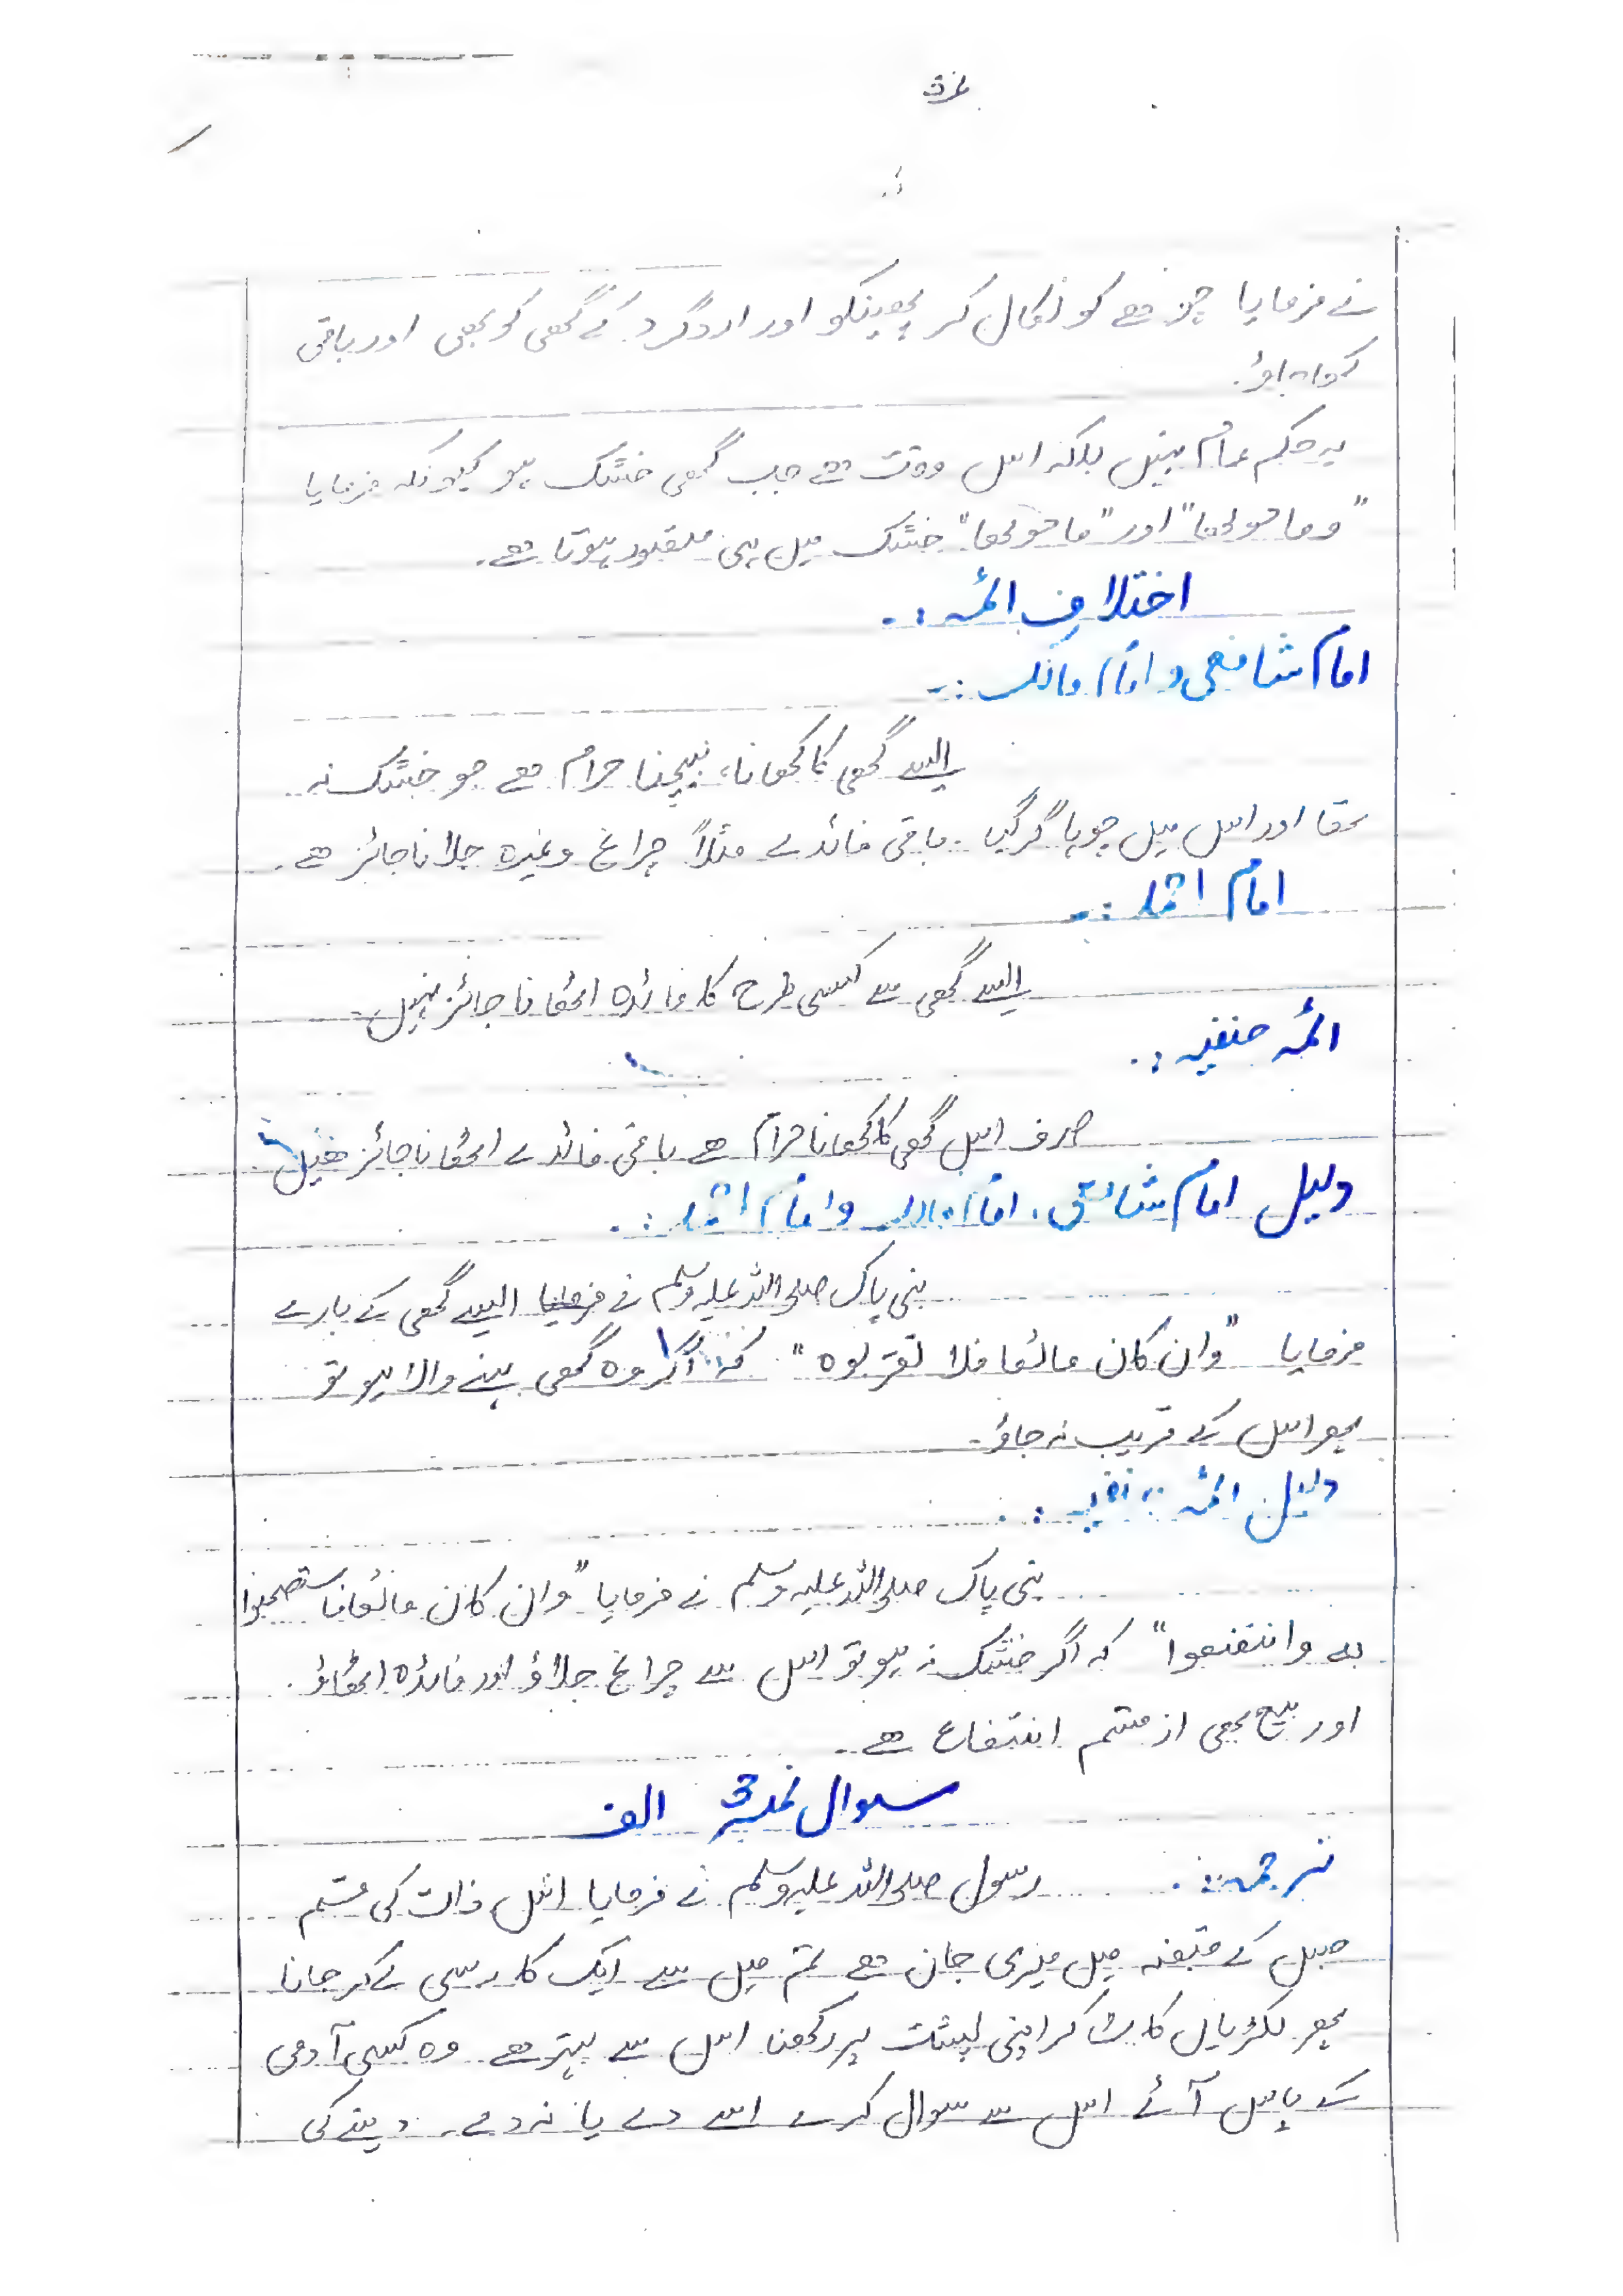 نے فرمایا چوہے کو نکال کر پھینکو اور اردگرد کے گھی کو بھی اور باقی
کو
یہ حکم عام نہیں بلکہ اس وقت ہے جب گھی خشک ہو کیونکہ فرمایا
"وما حولھا" اور "ما حولھا" خشک میں ہی متصور ہوتا ہے۔
اختلافِ ائمہ :۔
امام شافعی و امام مالک :۔
ایسے گھی کا کھانا، بیچنا حرام ہے جو خشک نہ
تھا اور اس میں چوہا گر گیا۔ باقی فائدے مثلاً چراغ وغیرہ جلانا جائز ہے۔
امام احمد :۔
ایسے گھی سے کسی طرح کا فائدہ اٹھانا جائز نہیں۔
ائمہ حنفیہ :۔
صرف اس گھی کا کھانا حرام ہے باقی فائدے اٹھانا جائز ھیں
دلیل امام شافعی، امام مالک و امام احمد :۔
نبی پاک صلی اللہ علیہ وسلم نے فرمایا ایسے گھی کے بارے
فرمایا "وان کان مائعا فلا تقربوہ" کہ اگر وہ گھی بہنے والا ہو تو
پھر اس کے قریب نہ جاؤ۔
دلیل ائمہ حنفیہ :۔
نبی پاک صلی اللہ علیہ وسلم نے فرمایا "وان کان مائعا فاستصبحوا
بہ وانتفعوا" کہ اگر خشک نہ ہو تو اس سے چراغ جلاؤ اور فائدہ اٹھاؤ۔
اور بیع بھی از قسم انتفاع ہے۔
سوال نمبر 3 الف
ترجمہ :۔ رسول صلی اللہ علیہ وسلم نے فرمایا اس ذات کی قسم
جس کے قبضہ میں میری جان ہے تم میں سے ایک کا رسی لے کر جانا
پھر لکڑیاں کاٹ کر اپنی پشت پر رکھنا اس سے بہتر ہے وہ کسی آدمی
کے پاس آئے اس سے سوال کرے اسے دے یا نہ دے۔ دینے کی